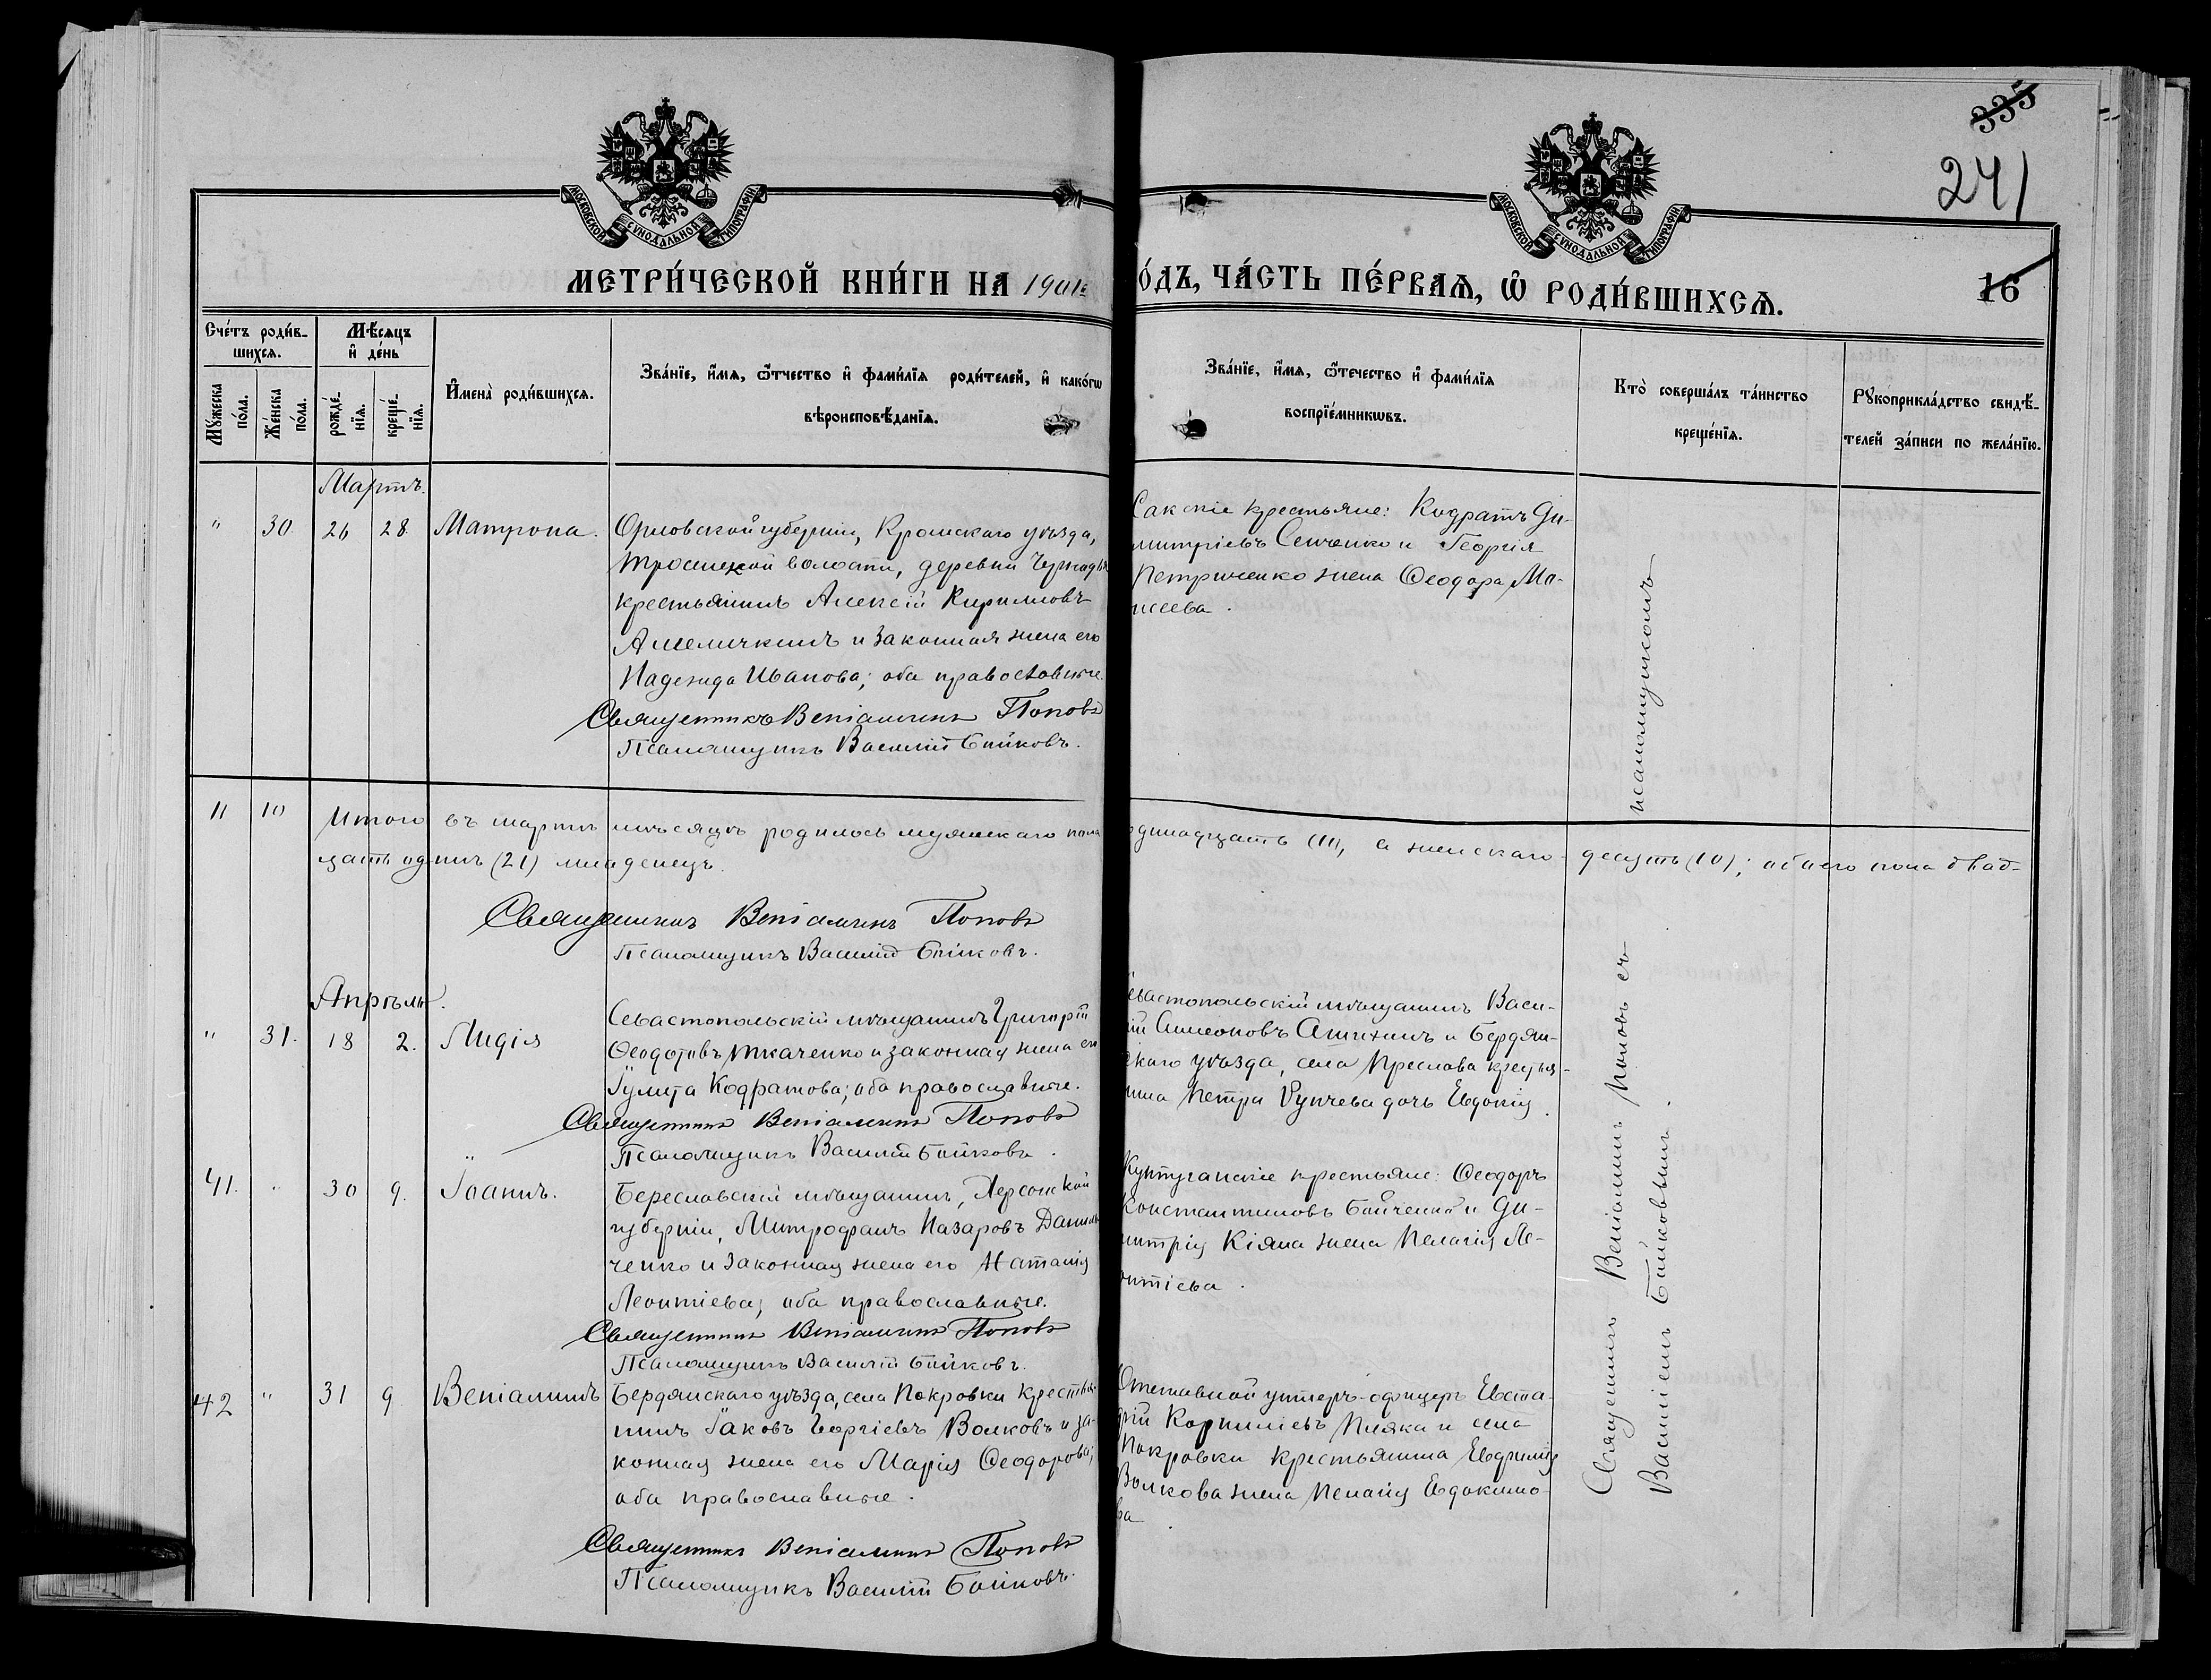 335
241
МОСКОВСКОЙ СѴНОДАЛЬНОЙ ТИПОГРАФІИ
МОСКОВСКОЙ СѴНОДАЛЬНОЙ ТИПОГРАФІИ
МЕТРИ́ЧЕСКОЙ КНИ́ГИ НА 1901 г
О́ДЪ, ЧА́СТЬ ПЕ́РВАѦ, Ѽ РОДИ́ВШИХСѦ.
16
Сче́тъ роди́в-
шихсѧ.
Мѣ́сѧцъ
и҆ де́нь
Мꙋ́жеска по́ла.
Же́нска по́ла.
рожде́-
нїѧ.
креще́-
нїѧ.
И҆мена̀ роди́вшихсѧ.
Зва́нїе, и҆́мѧ, ѻ҆́тчество и҆ фами́лїѧ роди́телей, и҆ како́гѡ
вѣроисповѣ́данїѧ.
Зва́нїе, и҆́мѧ, ѻ҆́течество и҆ фами́лїѧ
воспрїе́мникѡвъ.
Кто̀ соверша́лъ та́инство
креще́нїѧ.
Рꙋкоприкла́дство свидѣ́-
телей за́писи по жела́нїю.
Мартъ.
" 30 26 28. Матрона.
Орловской губерніи, Кромскаго уѣзда,
волости, деревни
крестьянинъ Алексій Кирилловъ
Амеличкинъ и законная жена его
Надежда Иванова; оба православные.
Священникъ Веніаминъ Поповъ
Псаломщикъ Василій Бойковъ.
Сакскіе крестьяне: Кодратъ Ди-
митріевъ Сенченко и Георгія
Петриченко жена Ѳеодора Мо-
исеева.
11 10 Итого въ мартѣ мѣсяцѣ родилось мужескаго пола
одинадцать (11), а женскаго десять (10); обоего пола двад-
цать одинъ (21) младенецъ.
Священникъ Веніаминъ Поповъ
Псаломщикъ Василій Бойковъ.
Апрѣль.
" 31. 18 2. Лидія
Севастопольскій мѣщанинъ Григорій
Ѳеодотовъ Ткаченко и законная жена его
Іулита Кодратова; оба православные.
Священникъ Веніаминъ Поповъ
Псаломщикъ Василій Бойковъ.
евастопольскій мѣщанинъ Васи-
лій Симеоновъ Анихинъ и Бердян-
скаго уѣзда, села Преслава крестья-
нина Петра дочь Евдокія.
41. " 30 9. Іоаннъ.
Береславскій мѣщанинъ, Херсонской
губерніи, Митрофанъ Назаровъ Данил-
ченко и законная жена его Наталія
Леонтіева; оба православные.
Священникъ Веніаминъ Поповъ
Псаломщикъ Василій Бойковъ.
Кунтуганскіе крестьяне: Ѳеодоръ
Константиновъ Бойченко и Ди-
митрія Кіяна жена Пелагія Ле-
онтіева.
42 " 31 9 Веніаминъ
Бердянскаго уѣзда, села Покровки крестья-
нинъ Іаковъ Георгіевъ Волковъ и за-
конная жена его Марія Ѳеодорова;
оба православные.
Священникъ Веніаминъ Поповъ
Псаломщикъ Василій Бойковъ.
Отставной унтеръ-офицеръ Евста-
фій Корниліевъ Пляка и села
Покровки крестьянина Евфимія
Волкова жена Пелагія Евдокимо-
ва
Священникъ Веніаминъ Поповъ съ псаломщикомъ
Василіемъ Бойковымъ.